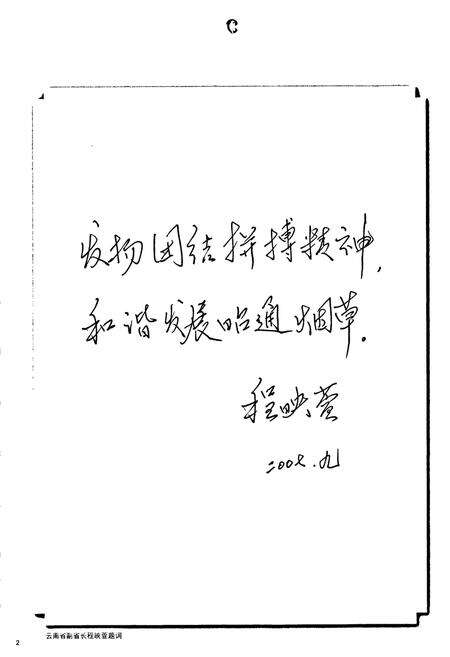 C
发扬团结拼搏精神,
和谐发展昭通烟草.
程映萱
二00七.九
云南省副省长程映萱题词
2